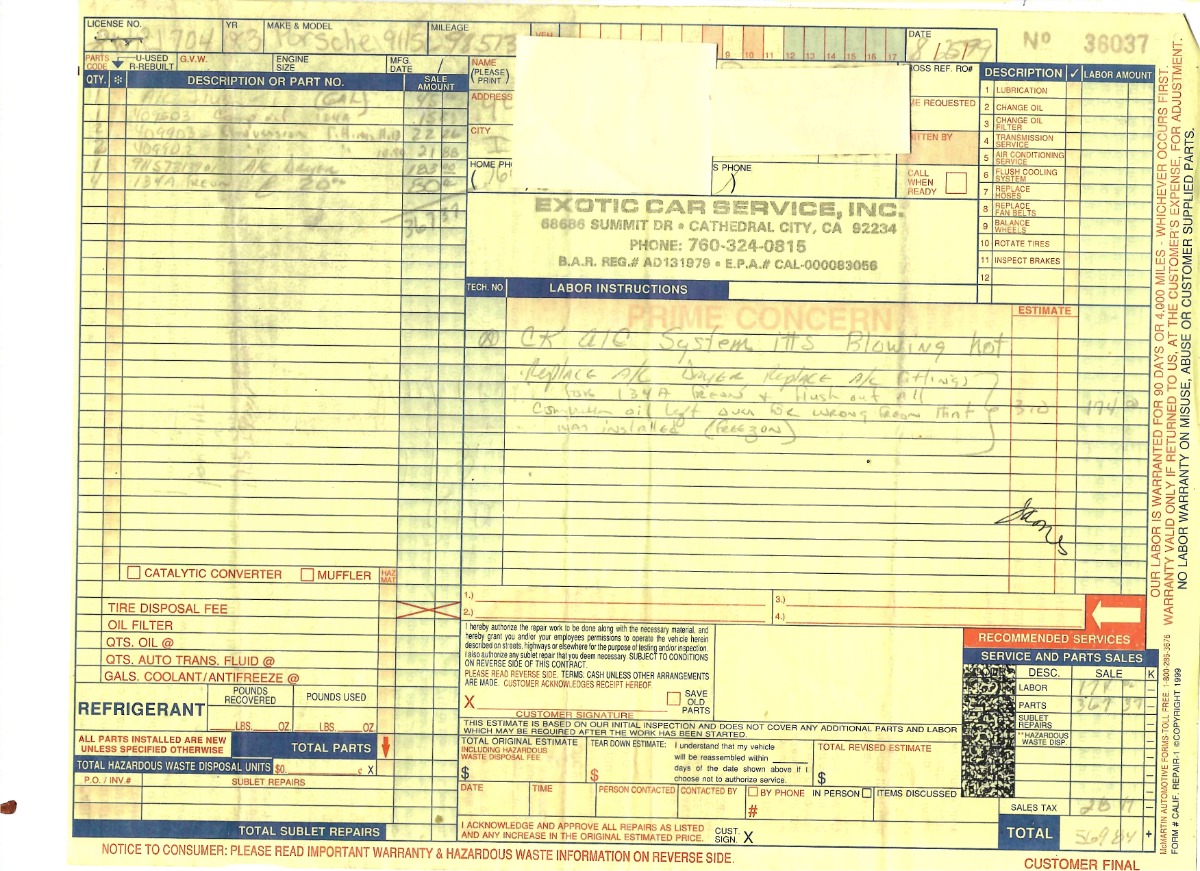 LICENSE NO.
YR
MAKE & MODEL
MILEAGE
DATE
No 36037
1704
83 Porsche 911S 298573
PARTS CODE
U-USED
R-REBUILT
G.V.W.
ENGINE SIZE
MFG. DATE
QTY.
*
DESCRIPTION OR PART NO.
SALE AMOUNT
409903 Conversion Fitting 22
409902 21 88
1 A/C Dryer 183
4 134A Freon 80
367 37
NAME
(PLEASE PRINT)
ADDRESS
CITY
HOME PH
S PHONE
9 10 11 12 13 14 15 16 17
OSS REF. RO#
ME REQUESTED
ITTEN BY
CALL WHEN READY
DESCRIPTION ✓ LABOR AMOUNT
1 LUBRICATION
2 CHANGE OIL
3 CHANGE OIL FILTER
4 TRANSMISSION SERVICE
5 AIR CONDITIONING SERVICE
6 FLUSH COOLING SYSTEM
7 REPLACE HOSES
8 REPLACE FAN BELTS
9 BALANCE WHEELS
10 ROTATE TIRES
11 INSPECT BRAKES
12
EXOTIC CAR SERVICE, INC.
68686 SUMMIT DR • CATHEDRAL CITY, CA 92234
PHONE: 760-324-0815
B.A.R. REG.# AD131979 • E.P.A.# CAL-000083056
TECH. NO.
LABOR INSTRUCTIONS
PRIME CONCERN
ESTIMATE
CK A/C System ITS Blowing hot
Replace A/C Dryer Replace A/C Fittings
for 134A Freon & flush out All
oil left over wrong freon that
was installed (Freezon)
3.0 174
CATALYTIC CONVERTER
MUFFLER
HAZ MAT
TIRE DISPOSAL FEE
OIL FILTER
QTS. OIL @
QTS. AUTO TRANS. FLUID @
GALS. COOLANT/ANTIFREEZE @
REFRIGERANT
POUNDS RECOVERED
POUNDS USED
LBS. OZ
LBS. OZ
ALL PARTS INSTALLED ARE NEW UNLESS SPECIFIED OTHERWISE
TOTAL PARTS
TOTAL HAZARDOUS WASTE DISPOSAL UNITS $0. ¢ X
P.O. / INV #
SUBLET REPAIRS
TOTAL SUBLET REPAIRS
1.)
2.)
3.)
4.)
I hereby authorize the repair work to be done along with the necessary material, and
hereby grant you and/or your employees permissions to operate the vehicle herein
described on streets, highways or elsewhere for the purpose of testing and/or inspection.
I also authorize any sublet repair that you deem necessary. SUBJECT TO CONDITIONS
ON REVERSE SIDE OF THIS CONTRACT.
PLEASE READ REVERSE SIDE. TERMS: CASH UNLESS OTHER ARRANGEMENTS
ARE MADE. CUSTOMER ACKNOWLEDGES RECEIPT HEREOF.
X
CUSTOMER SIGNATURE
SAVE OLD PARTS
THIS ESTIMATE IS BASED ON OUR INITIAL INSPECTION AND DOES NOT COVER ANY ADDITIONAL PARTS AND LABOR
WHICH MAY BE REQUIRED AFTER THE WORK HAS BEEN STARTED.
TOTAL ORIGINAL ESTIMATE
INCLUDING HAZARDOUS WASTE DISPOSAL FEE
$
TEAR DOWN ESTIMATE:
$
I understand that my vehicle
will be reassembled within
days of the date shown above if I
choose not to authorize service.
TOTAL REVISED ESTIMATE
$
DATE
TIME
PERSON CONTACTED
CONTACTED BY
BY PHONE
#
IN PERSON
ITEMS DISCUSSED
I ACKNOWLEDGE AND APPROVE ALL REPAIRS AS LISTED
AND ANY INCREASE IN THE ORIGINAL ESTIMATED PRICE.
CUST. SIGN. X
RECOMMENDED SERVICES
SERVICE AND PARTS SALES
CODE DESC. SALE K
LABOR 174
PARTS 367 37
SUBLET REPAIRS
**HAZARDOUS WASTE DISP.
SALES TAX 28 47
TOTAL 569 84
NOTICE TO CONSUMER: PLEASE READ IMPORTANT WARRANTY & HAZARDOUS WASTE INFORMATION ON REVERSE SIDE.
CUSTOMER FINAL
OUR LABOR IS WARRANTED FOR 90 DAYS OR 4,000 MILES - WHICHEVER OCCURS FIRST.
WARRANTY VALID ONLY IF RETURNED TO US, AT THE CUSTOMER'S EXPENSE, FOR ADJUSTMENT.
NO LABOR WARRANTY ON MISUSE, ABUSE OR CUSTOMER SUPPLIED PARTS.
McMARTIN AUTOMOTIVE FORMS-TOLL FREE 1-800-286-3676
FORM # CALIF. REPAIR-1 ©COPYRIGHT 1999